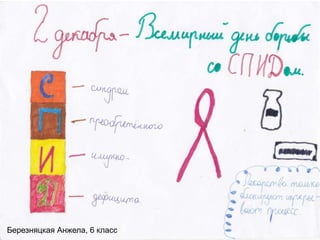 2 декабря – Всемирный день борьбы
со СПИДом.
С – синдром
П – преобретённого
И – иммуно-
Д – дефицита
Лекарства только
вают процесс
Березняцкая Анжела, 6 класс